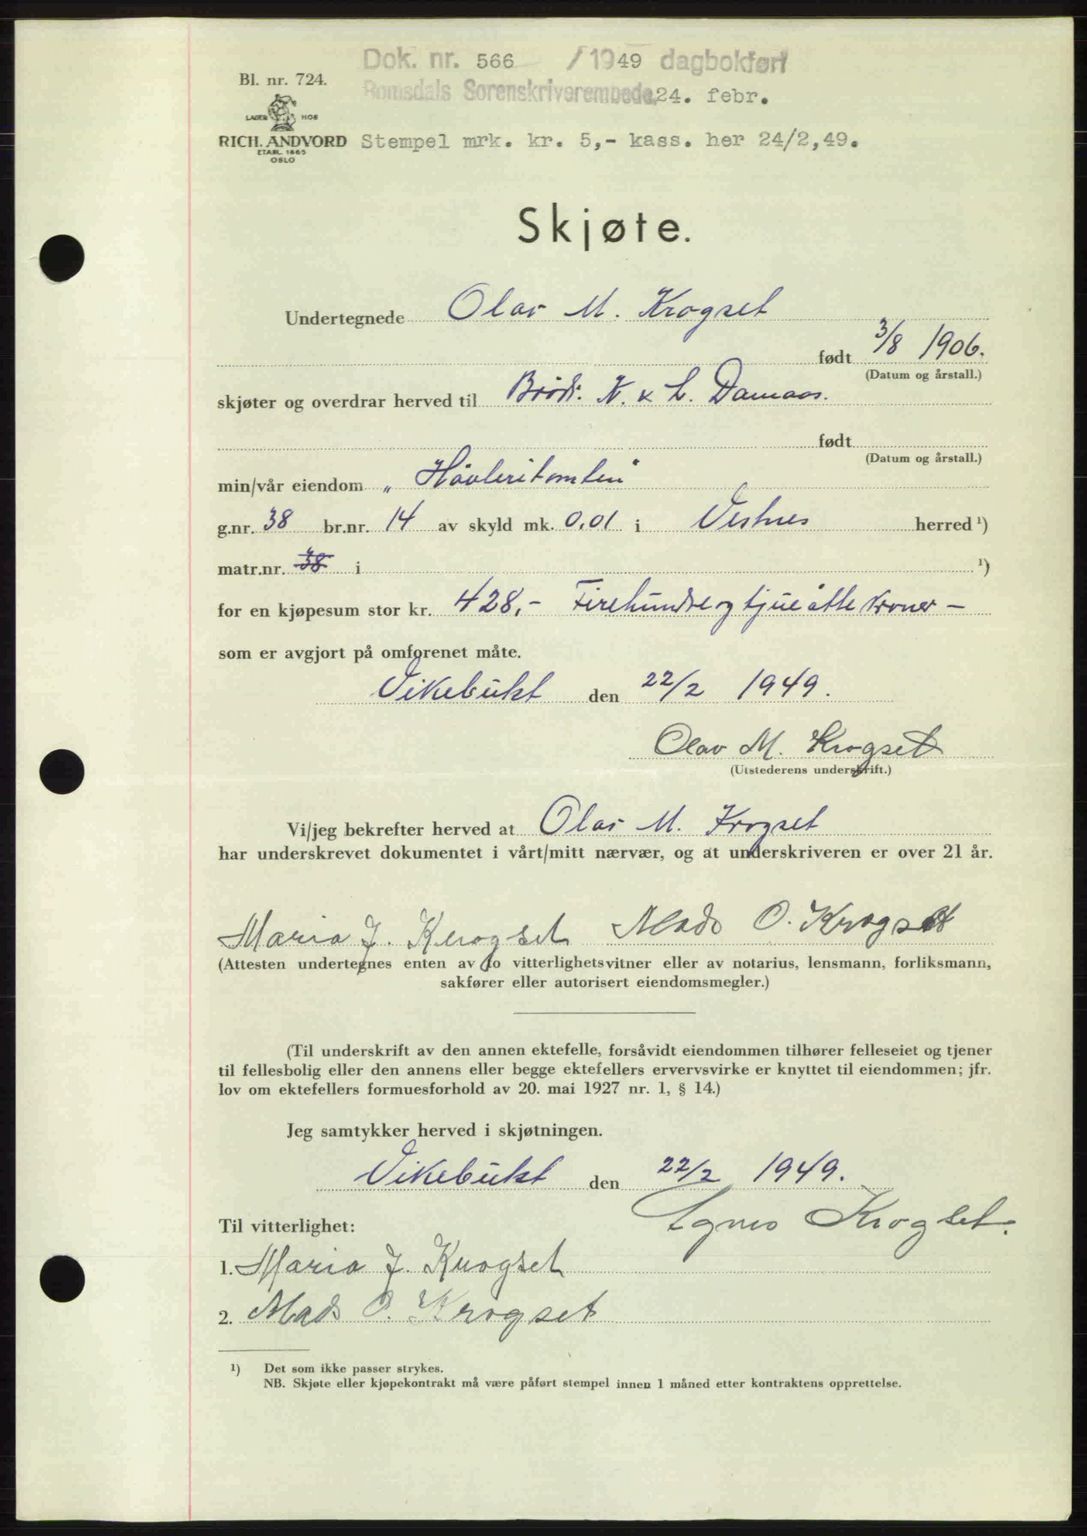 Dok. nr. 566 /1949 dagbokført
Bl. nr. 724.
Romsdals Sorenskriverembede 24. febr.
LAGER HOS
RICH. ANDVORD
ETABL. 1865
OSLO
Stempel mrk. kr. 5,- kass. her 24/2,49.
Skjøte.
Undertegnede Olav M. Krogset
født 3/8 1906.
(Datum og årstall.)
skjøter og overdrar herved til Brødr. N. & L. Damaas.
født
(Datum og årstall.)
min/vår eiendom „Høvleritomten"
g.nr. 38 br.nr. 14 av skyld mk. 0,01 i Vestnes herred ¹)
matr.nr. 38 i ¹)
for en kjøpesum stor kr. 428,- Firehundreogtjueåtte kroner –
som er avgjort på omforenet måte.
Vikebukt den 22/2 1949.
Olav M. Krogset
(Utstederens underskrift.)
Vi/jeg bekrefter herved at Olav M. Krogset
har underskrevet dokumentet i vårt/mitt nærvær, og at underskriveren er over 21 år.
Maria J. Krogset Mads O. Krogset
(Attesten undertegnes enten av to vitterlighetsvitner eller av notarius, lensmann, forliksmann,
sakfører eller autorisert eiendomsmegler.)
(Til underskrift av den annen ektefelle, forsåvidt eiendommen tilhører felleseiet og tjener
til fellesbolig eller den annens eller begge ektefellers ervervsvirke er knyttet til eiendommen; jfr.
lov om ektefellers formuesforhold av 20. mai 1927 nr. 1, § 14.)
Jeg samtykker herved i skjøtningen.
Vikebukt den 22/2 1949.
Agnes Krogset.
Til vitterlighet:
1. Maria J. Krogset
2. Mads O. Krogset
¹) Det som ikke passer strykes.
NB. Skjøte eller kjøpekontrakt må være påført stempel innen 1 måned etter kontraktens opprettelse.